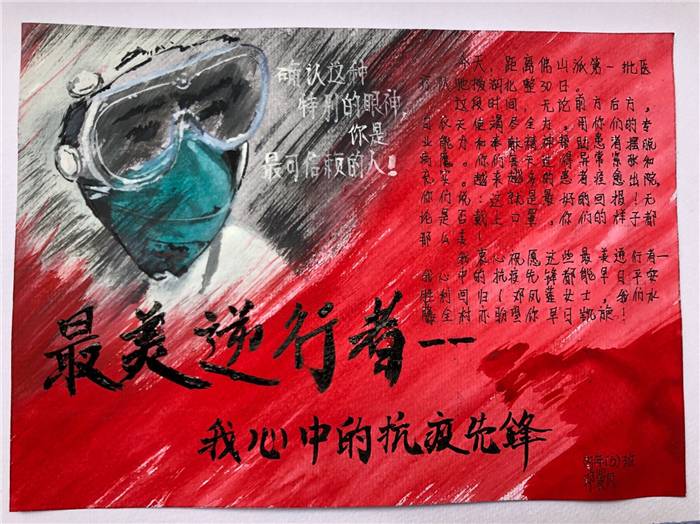 确认这种
特别的眼神,
你是
最可信赖的人!
今天,距离佛山派第一批医
疗队驰援湖北整30日。
这段时间,无论前方后方,
白衣天使竭尽全力,用你们的专
业能力和奉献精神帮助患者摆脱
病魔。你们每天过得异常紧张和
充实。越来越多的患者痊愈出院,
你们说:这就是最好的回报!无
论是否戴上口罩,你们的样子都
那么美!
我衷心祝愿这些最美逆行者——
我心中的抗疫先锋都能早日平安
胜利回归(邓凤莲女士,我们水
藤全村亦盼望你早日凯旋!
最美逆行者——
我心中的抗疫先锋